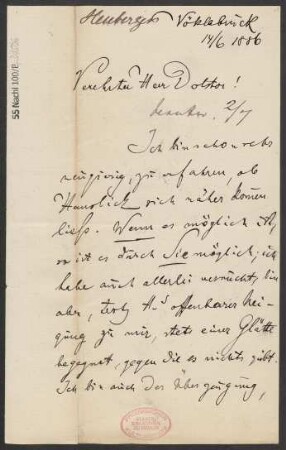 Heuberger
Vöklabruck
14/6 1886
55 Nachl 100/B
Verehrter Herr Doktor!
beantw. 2/7
Ich bin schon sehr
neugierig, zu erfahren, ob
Hanslick sich näher kommen
ließ. Wenn es möglich ist,
so ist es durch Sie möglich; ich
habe auch allerlei versucht, bin
aber, trotz H's offenbarer Nei-
gung zu mir, stets einer Glätte
begegnet, gegen die es nichts gibt.
Ich bin auch der Überzeugung,